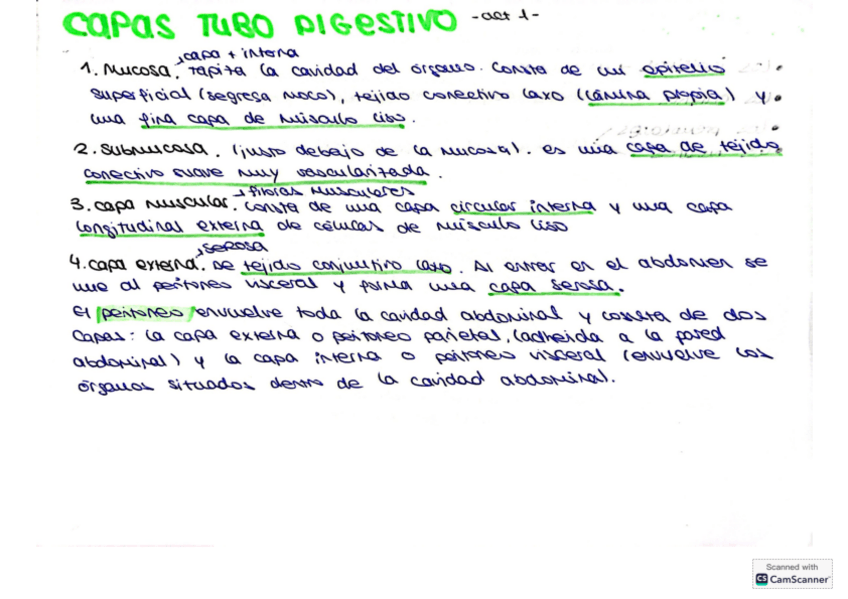 CAPAS TUBO DIGESTIVO -act 1-
capa + interna
1. Mucosa. Tapita la cavidad del órgano. Consta de un epitelio
superficial (segrega moco), tejido conectivo laxo (lámina propia) y
una fina capa de músculo liso.
2. Submucosa. (justo debajo de la mucosa). es una capa de tejido
conectivo suave muy vascularizada.
fibras musculares
3. capa muscular. consta de una capa circular interna y una capa
longitudinal externa de células de músculo liso
serosa
4. capa externa. De tejido conjuntivo laxo. Al entrar en el abdomen se
une al peritoneo visceral y forma una capa serosa.
El peritoneo envuelve toda la cavidad abdominal y consta de dos
capas: la capa externa o peritoneo parietal, (adherida a la pared
abdominal) y la capa interna o peritoneo visceral (envuelve los
órganos situados dentro de la cavidad abdominal.
Scanned with
CS CamScanner